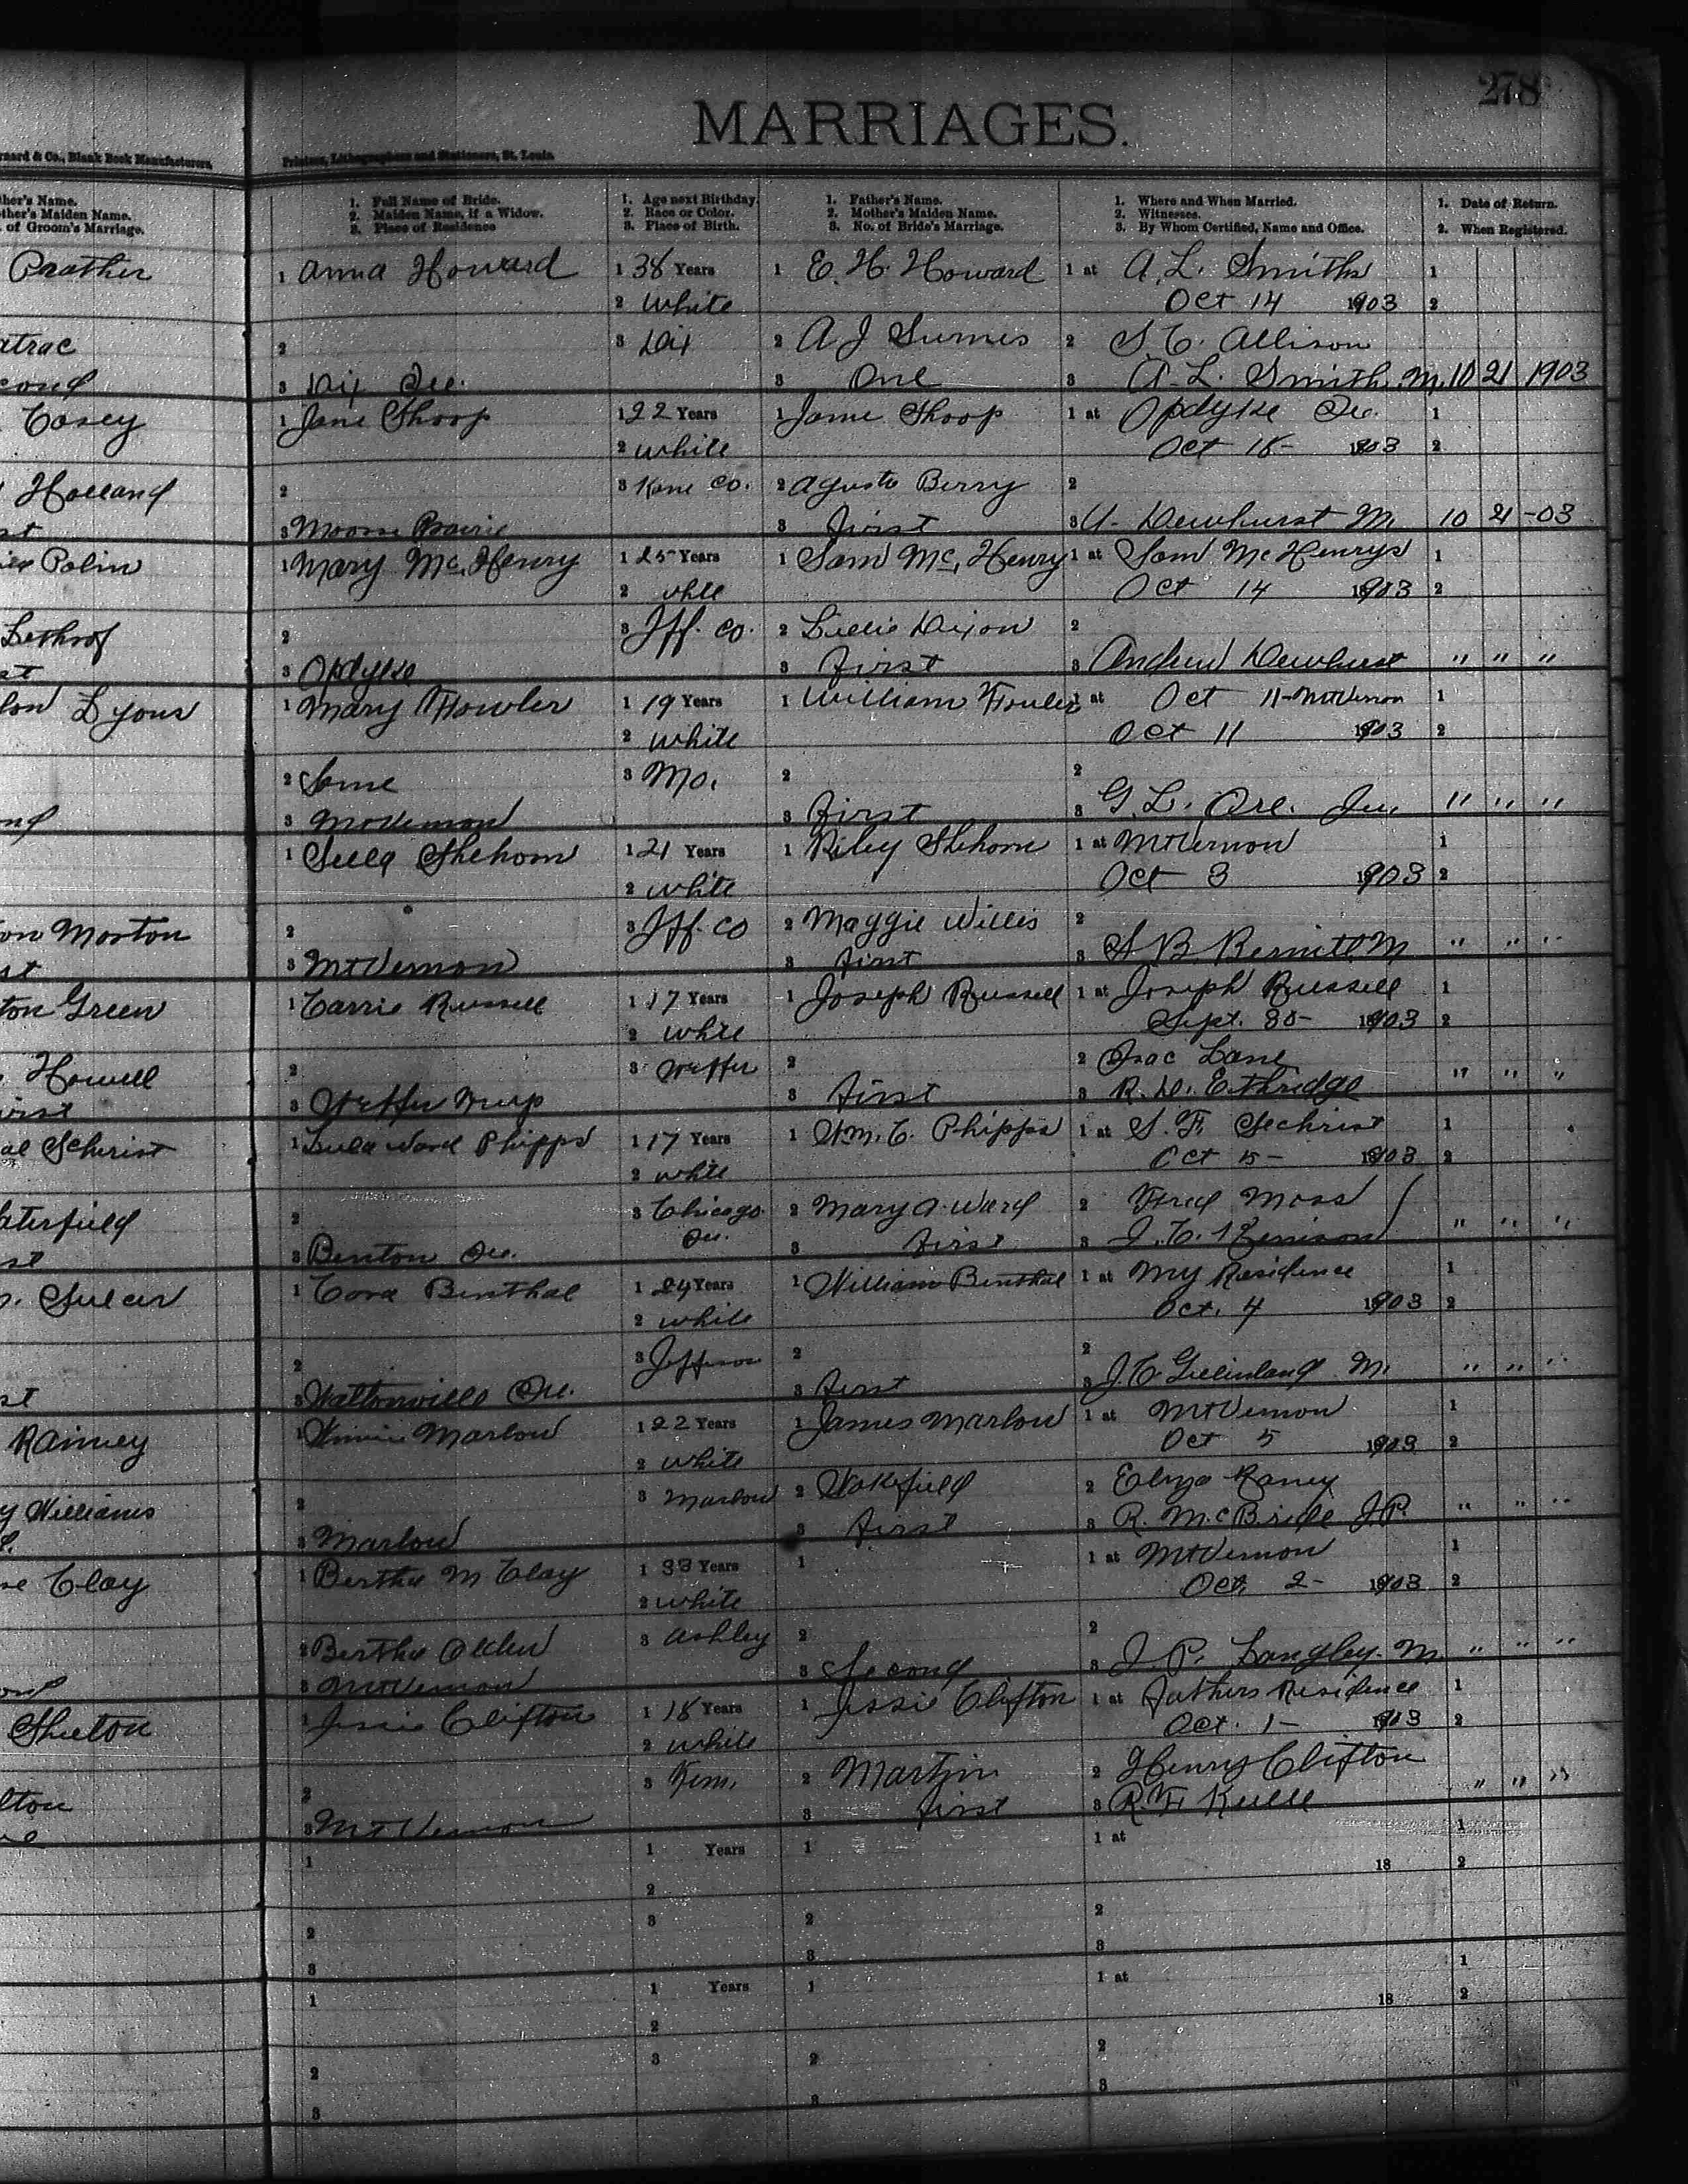 278
MARRIAGES.
rnard & Co., Blank Book Manufacturers,
Printers, Lithographers and Stationers, St. Louis.
ther's Name.
other's Maiden Name.
of Groom's Marriage.
1. Full Name of Bride.
2. Maiden Name, if a Widow.
3. Place of Residence
1. Age next Birthday.
2. Race or Color.
3. Place of Birth.
1. Father's Name.
2. Mother's Maiden Name.
3. No. of Bride's Marriage.
1. Where and When Married.
2. Witnesses.
3. By Whom Certified, Name and Office.
1. Date of Return.
2. When Registered.
Prather 1 Anna Howard 1 38 Years 1 E. H. Howard 1 at A. L. Smiths 1
2 White Oct 14 1903 2
2 3 Dix 2 A J 2 S. C. Allison
3 Dix Ill. 3 One 3 A. L. Smith M. 10 21 1903
Casey 1 Jane Shoop 1 22 Years 1 Jame Shoop 1 at Opdyke Ill. 1
2 White Oct 18- 1903 2
Holland 2 3 Kane Co. 2 Agusta Berry 2
st 3 Moores Prairie 3 first 3 A. Dewhurst M. 10 21 -03
Polin 1 Mary Mc. Henry 1 25 Years 1 Sam Mc. Henry 1 at Sam Mc Henrys 1
2 Oct 14 1903 2
2 3 Jff. Co. 2 Lillie Dixon 2
st 3 Opdyke 3 first 3 Andrew Dewhurst " " "
Lyons 1 Mary Fowler 1 19 Years 1 William Fowler 1 at Oct 11-MtVernon 1
2 White Oct 11 1903 2
2 Same 3 Mo. 2 2
3 MtVernon 3 first 3 G. L. Ore. " " "
1 Shehorn 1 21 Years 1 Riley Shehorn 1 at MtVernon 1
2 White Oct 3 1903 2
on Morton 2 3 Jff. Co 2 Maggie Willis 2
st 3 MtVernon 3 first 3 B. M " " "
ton Green 1 Carrie Russell 1 17 Years 1 Joseph Russell 1 at Joseph Russell 1
2 white Sept. 30- 1903 2
Howell 2 3 2 2 Isac Lane
irst 3 3 first 3 R. D. Ethridge " " "
1 Lula Ward Phipps 1 17 Years 1 Wm. C. Phipps 1 at S. F. Sechrist 1
2 white Oct 5- 1903 2
aterfield 2 3 Chicago Ill. 2 Mary A. Ward 2 Fred Moss
st 3 Benton Ill. 3 first 3 " " "
1 Cora Benthal 1 24 Years 1 William Benthal 1 at My Residence 1
2 white Oct. 4 1903 2
2 3 Jefferson 2 2
st 3 Waltonville Ill. 3 first 3 J. C. M. " " "
Rainey 1 Marlow 1 22 Years 1 James Marlow 1 at MtVernon 1
2 White Oct 5 1903 2
y Williams 2 3 Marlow 2 Wakefield 2 Elzy Raney
3 Marlow 3 first 3 R. McBride J.P. " " "
Clay 1 Bertha M Clay 1 33 Years 1 1 at MtVernon 1
2 white Oct, 2- 1903 2
2 Bertha 3 Ashley 2 2
ond 3 MtVernon 3 Second 3 J. P. Langley. M " " "
Shelton 1 Jessie Clifton 1 18 Years 1 Jessie Clifton 1 at Fathers Residence 1
2 white Oct. 1- 1903 2
2 3 2 Martin 2 Henry Clifton
3 MtVernon 3 first 3 R. F. " " "
1 1 Years 1 1 at 1
2 18 2
2 3 2 2
3 3 3
1 1 Years 1 1 at 1
2 18 2
2 3 2 2
3 3 3